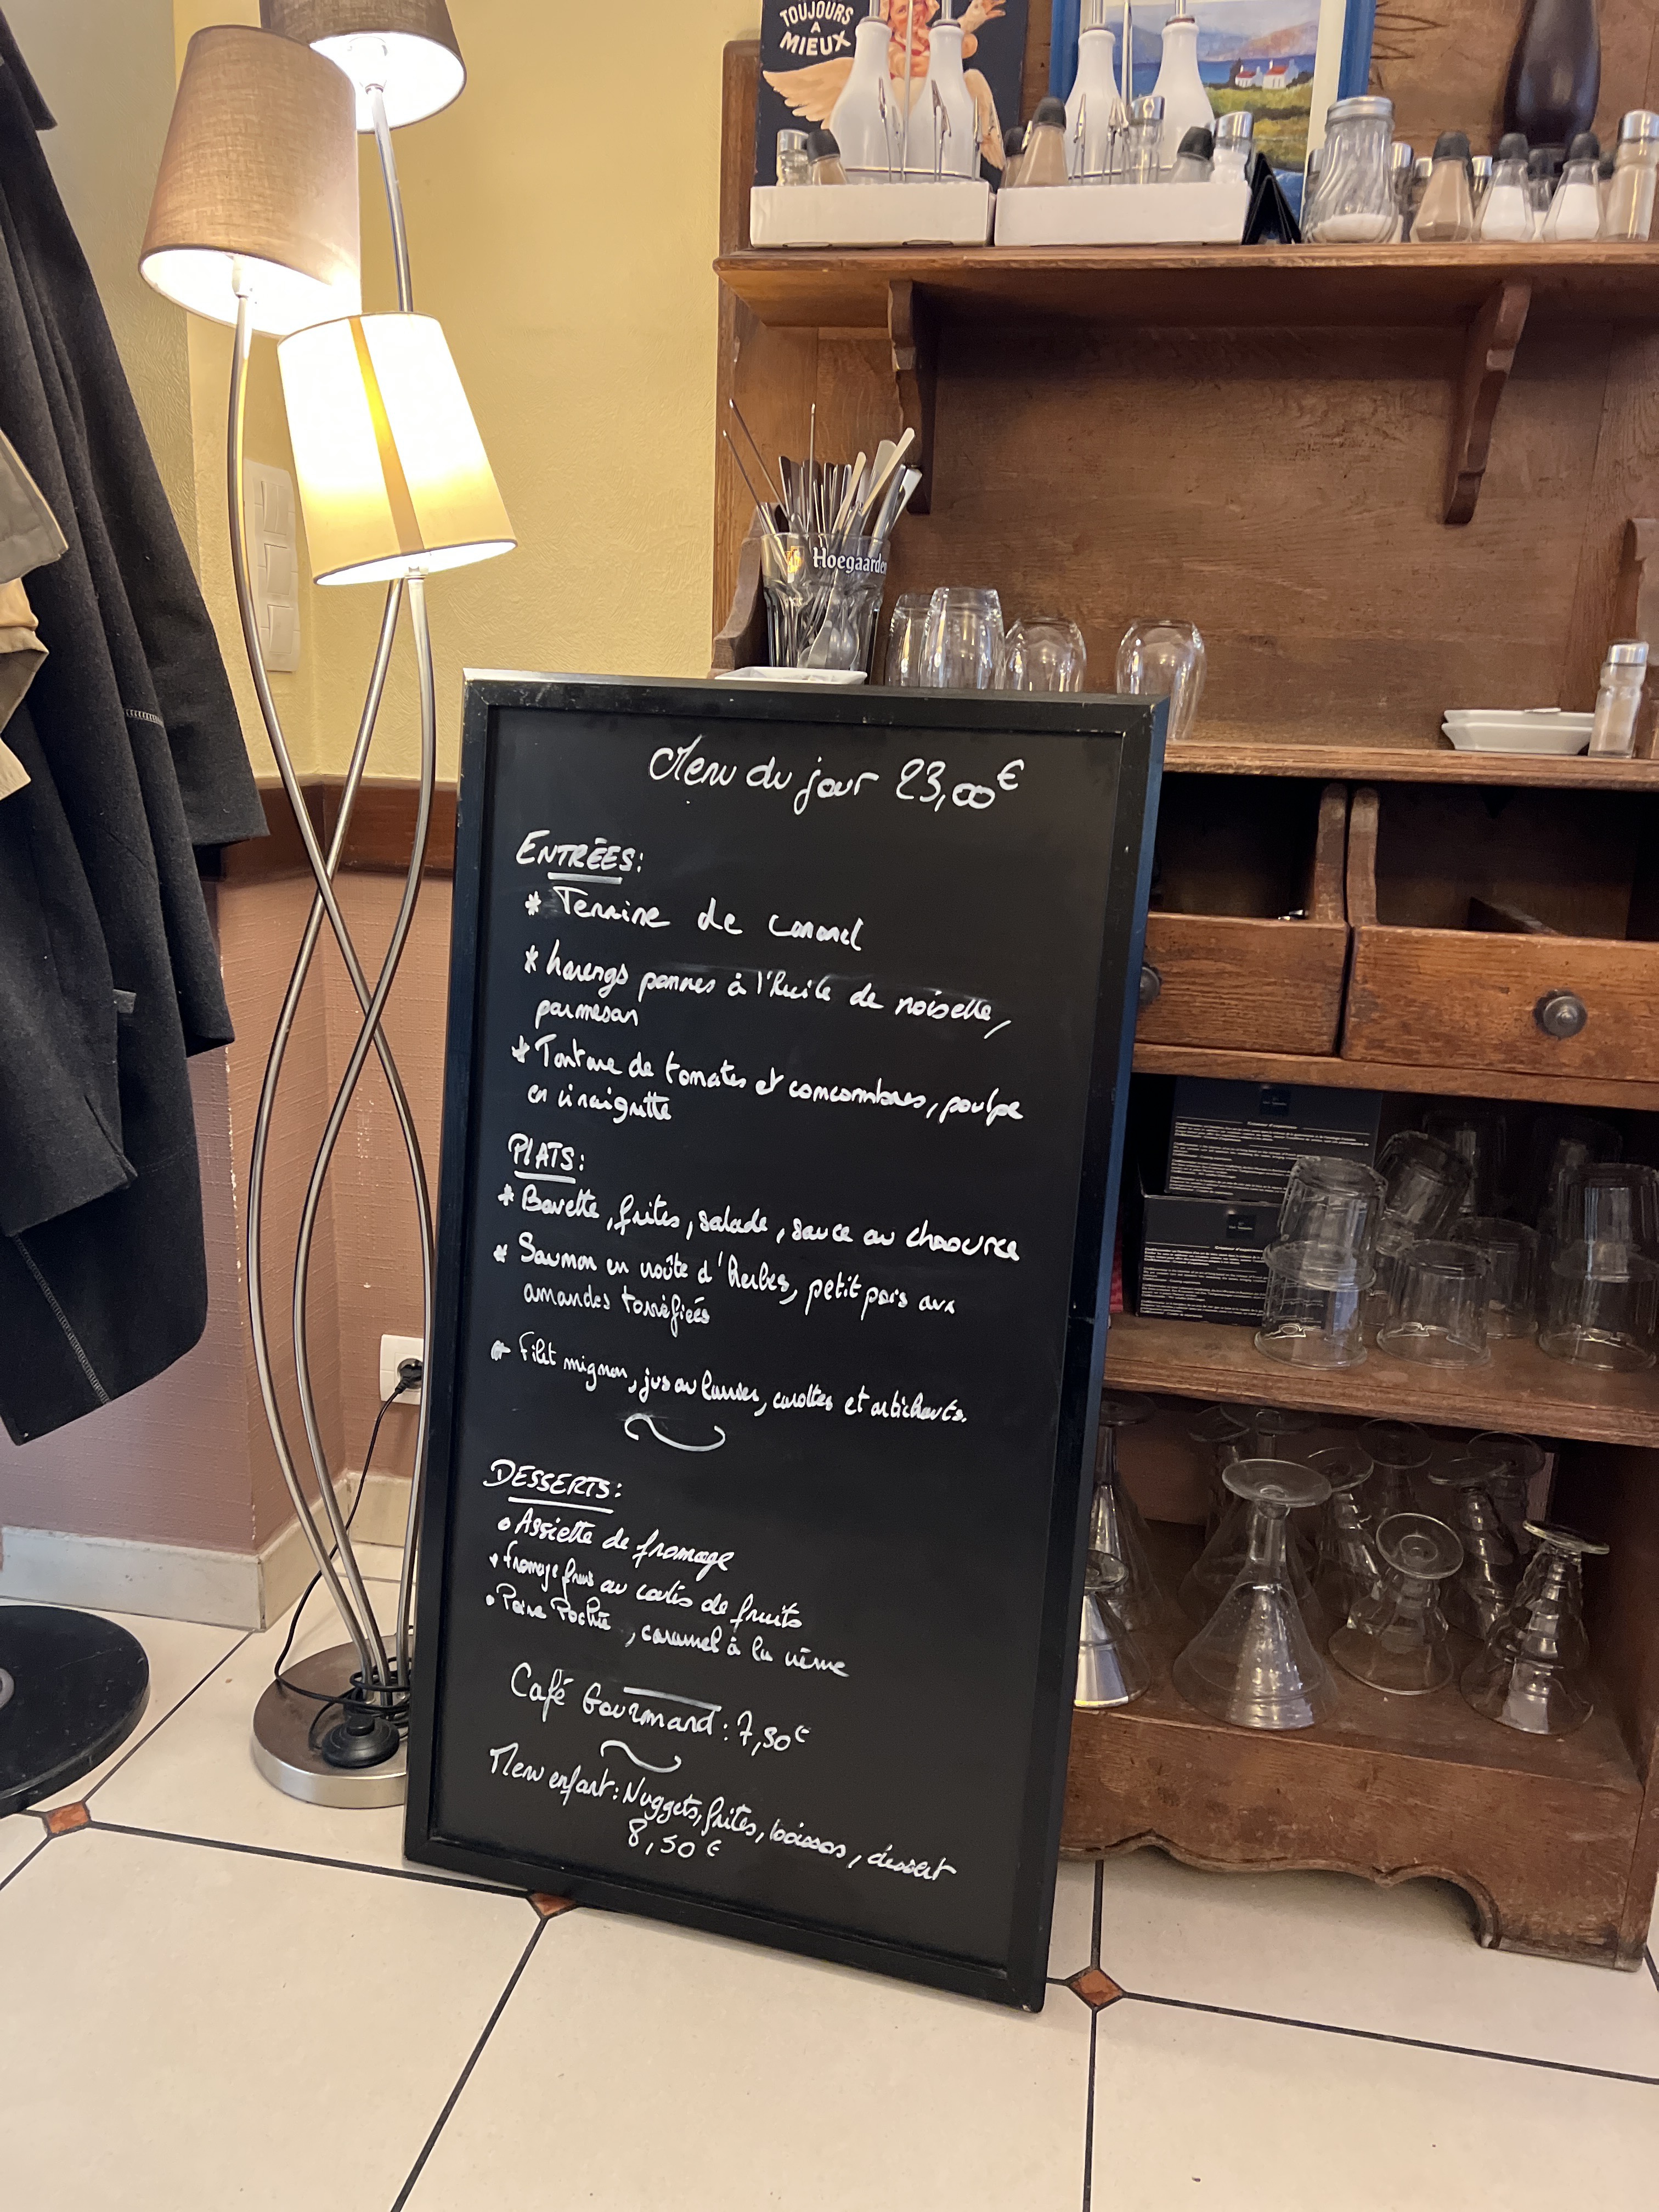 TOUJOURS
A
MIEUX
Hoegaarden
Menu du jour 23,00€
ENTRÉES:
* Terrine de canard
* harengs pommes à l'huile de noisette,
parmesan
* Tartare de tomates et concombres, poulpe
en vinaigrette
PLATS:
* Bavette, frites, salade, sauce au chaource
* Saumon en croûte d'herbes, petit pois aux
amandes torréfiées
* Filet mignon, jus au laurier, carottes et artichauts.
DESSERTS:
• Assiette de fromage
• fromage frais au coulis de fruits
• Poire Pochée, caramel à la crème
Café Gourmand: 7,50€
Menu enfant: Nuggets, frites, boisson, dessert
8,50€